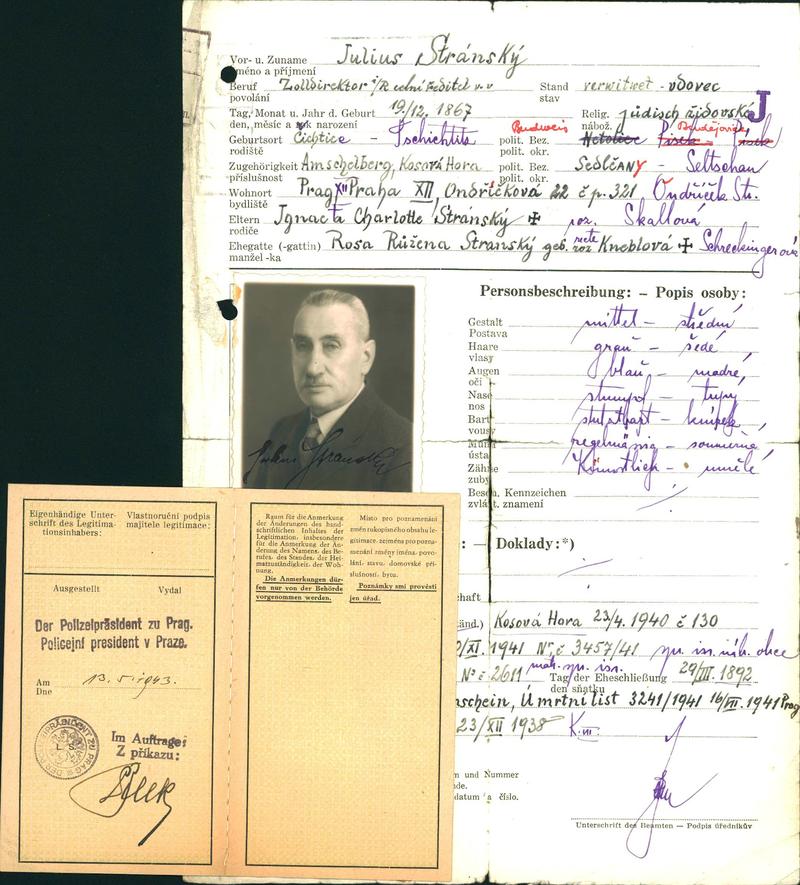 Vor- u. Zuname Julius Stránský
Jméno a příjmení
Beruf Zolldirektor i/R celní ředitel v.v Stand verwitwet - vdovec
povolání stav
Tag, Monat u. Jahr d. Geburt 19/12. 1867 Relig. jüdisch židovské J
den, měsíc a rok narození nábož.
Budweis Budějovice
Geburtsort Čichtice - Tschichtitz polit. Bez. Netolice Písek Písek
rodiště polit. okr.
Zugehörigkeit Amschelberg, Kosová Hora polit. Bez. Sedlčany - Seltschan
příslušnost polit. okr.
Wohnort Prag XII Praha XII, Ondříčkova 22 č p. 321 Ondříček Str.
bydliště
Eltern Ignac a Charlotte Stránský ✝ roz. Skallová
rodiče
Ehegatte (-gattin) Rosa Růžena Stránský geb. roz Kneblová ✝ Schreckingerová
manžel -ka
Personsbeschreibung: – Popis osoby:
Gestalt mittel – střední
Postava
Haare grau – šedé
vlasy
Augen blau – modré
oči
Nase stumpf – tupý
nos
Bart stutzbart – knírek
vousy
Mund regelmässig – souměrné
ústa
Zähne Künstlich – umělé
zuby
Besch. Kennzeichen
zvlášt. znamení
Julius Stránský
: – Doklady:*)
schaft
änd.) Kosová Hora 23/4. 1940 č 130
/XI. 1941 Nr, č 3457/41 isr. náb. obce
No č 2611 náb. isr. Tag der Eheschließung 29/III. 1892
den sňatku
nschein, Úmrtní list 3241/1941 16/VII. 1941 Prag
23/XII 1938
m und Nummer
de.
datum a číslo.
Unterschrift des Beamten — Podpis úředníkův
Eigenhändige Unterschrift des Legitimationsinhabers: Vlastnoruční podpis majitele legitimace:
Ausgestellt Vydal
Der Polizeipräsident zu Prag.
Policejní president v Praze.
Am 13. 5. 1943.
Dne
DER POLIZEIPRÄSIDENT ZU PRAG
L. S.
Im Auftrage:
Z příkazu:
Raum für die Anmerkung der Änderungen des handschriftlichen Inhaltes der Legitimation, insbesondere für die Anmerkung der Änderung des Namens, des Berufes, des Standes, der Heimatzuständigkeit, der Wohnung.
Die Anmerkungen dürfen nur von der Behörde vorgenommen werden.
Místo pro poznamenání změn rukopisného obsahu legitimace, zejména pro poznamenání změny jména, povolání, stavu, domovské příslušnosti, bytu.
Poznámky smí provésti jen úřad.